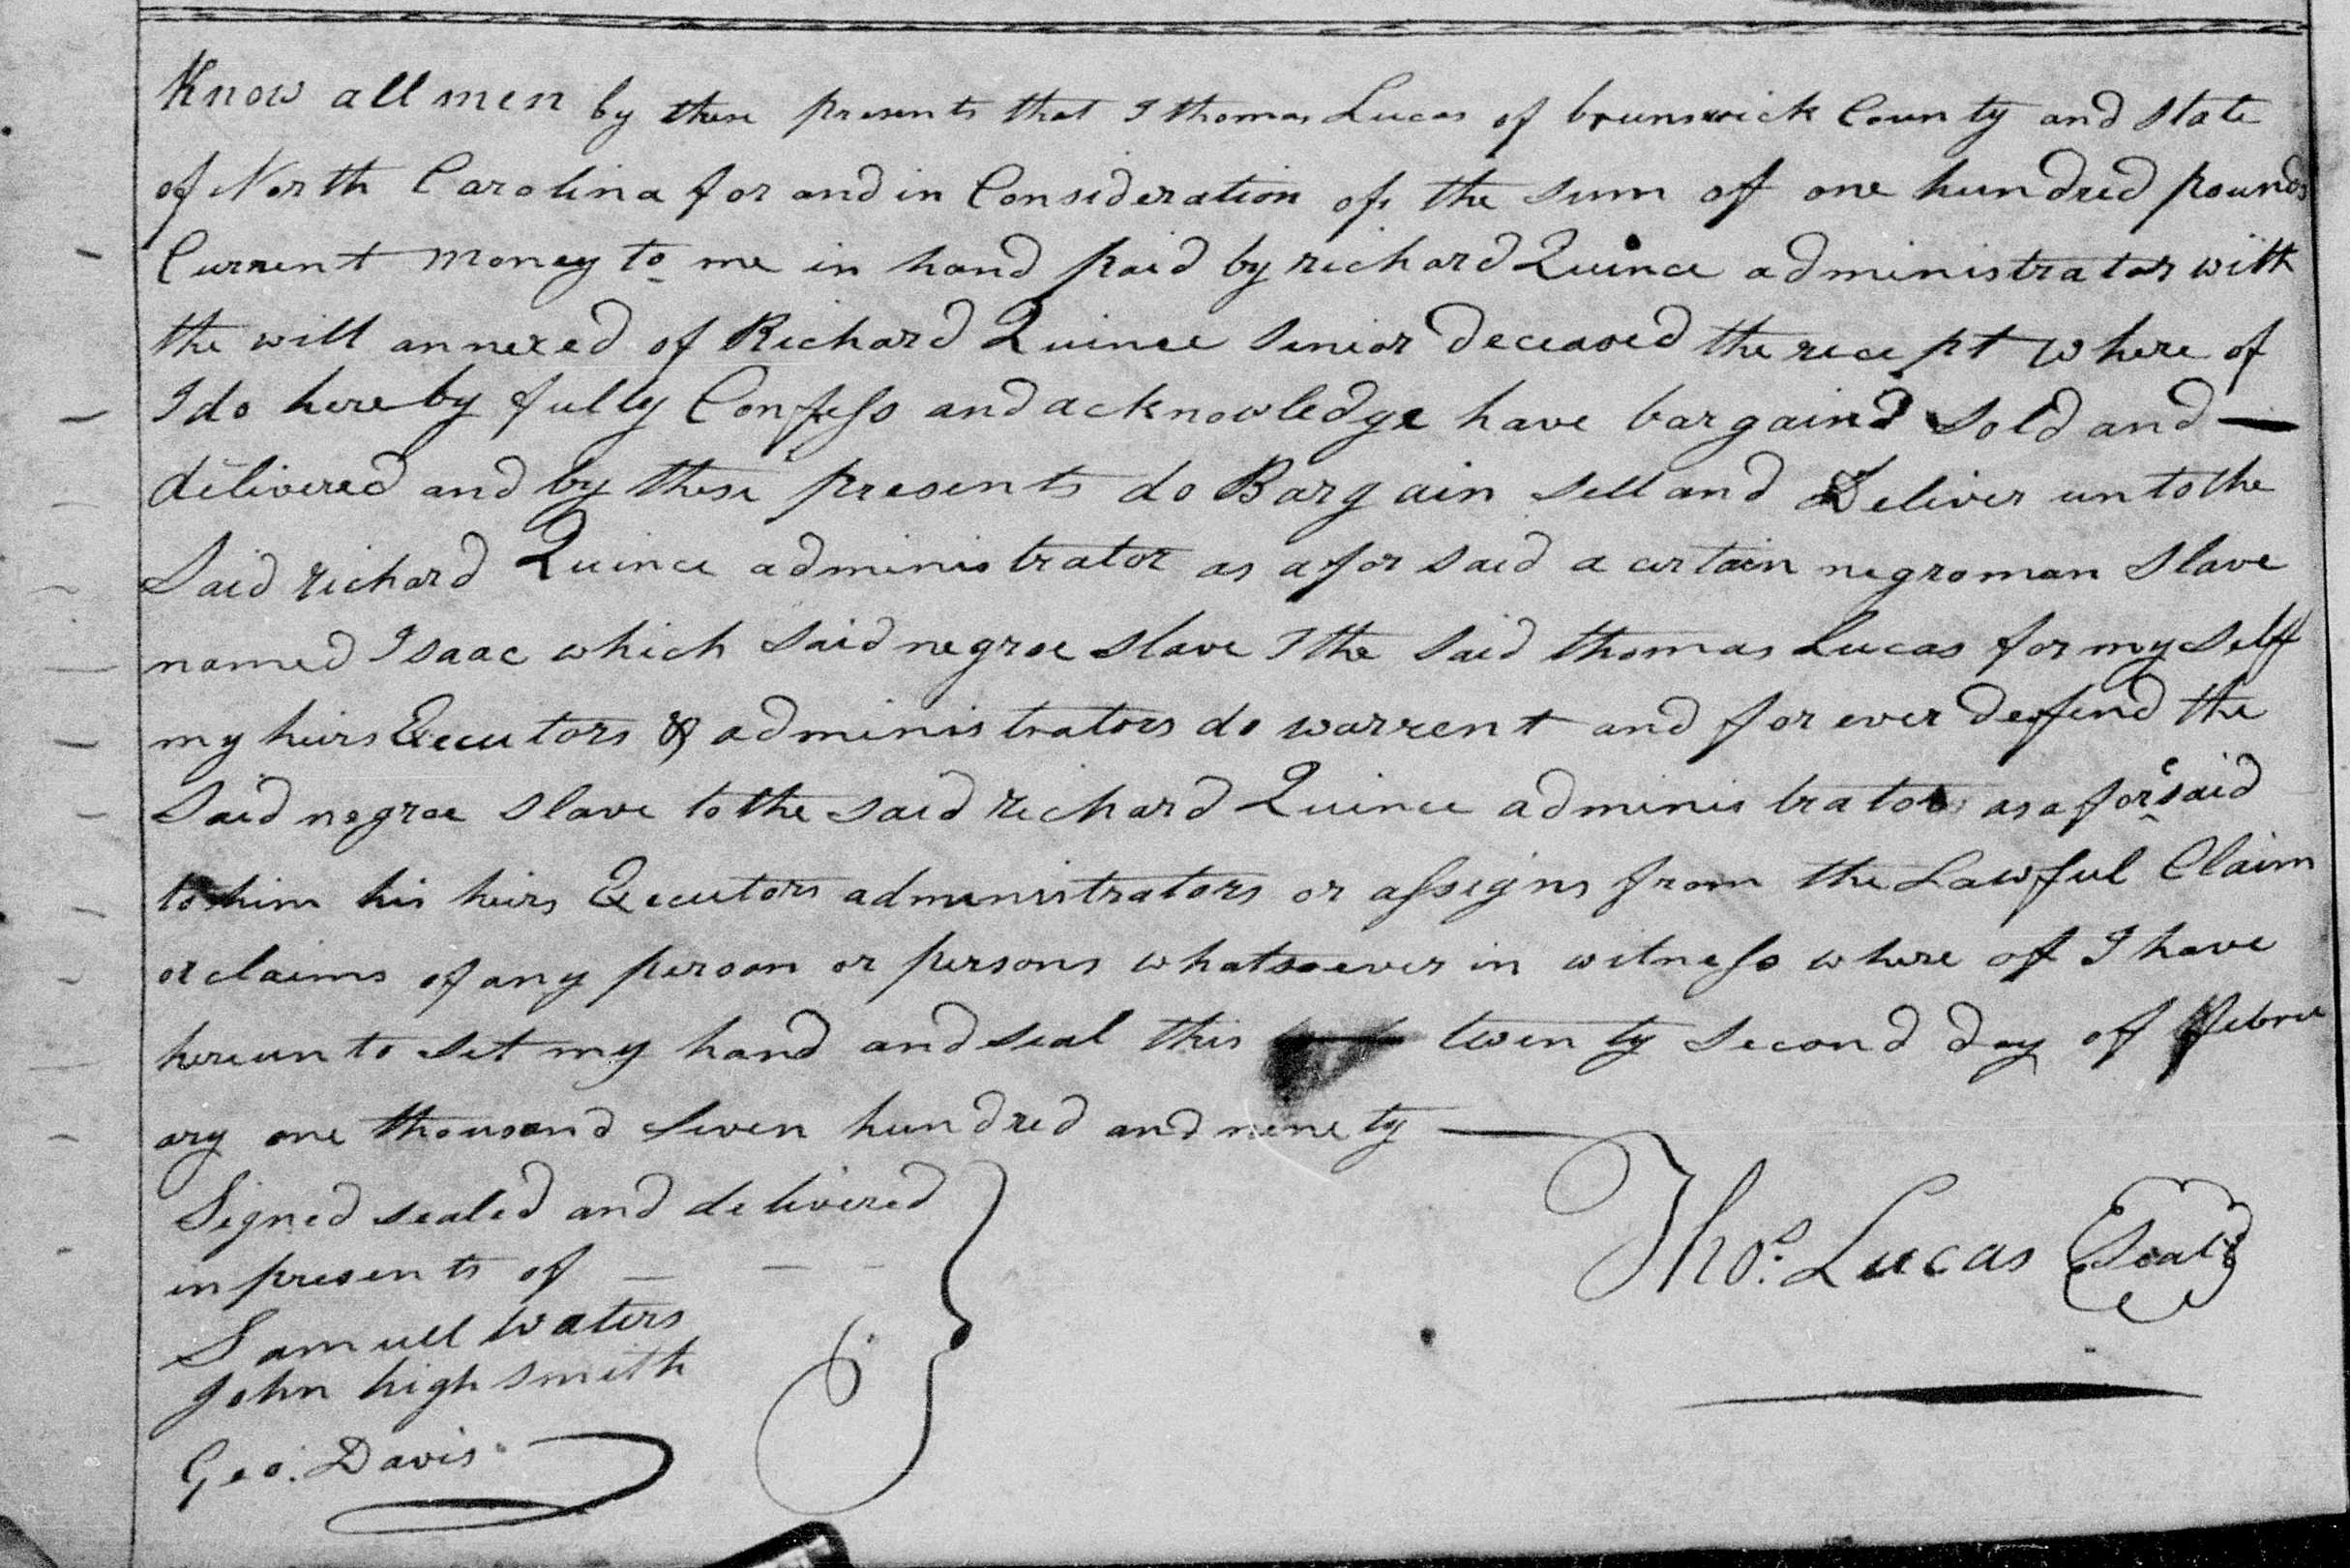 Know all men by these presents that I thomas Lucas of brunswick County and State
of North Carolina for and in Consideration of the sum of one hundred pounds
Current money to me in hand paid by richard Quince administrator with
the will annexed of Richard Quince Senior deceased the receipt where of
I do here by fully Confess and acknowledge have bargaind sold and —
delivered and by these presents do Bargain sell and Deliver unto the
Said richard Quince administrator as afor said a certain negro man Slave
named Isaac which said negroe slave I the said thomas Lucas for my self
my heirs Executors & administrators do warrent and for ever defend the
Said negroe slave to the said richard Quince administrator as aforesaid
to him his heirs Executors administrators or assigns from the Lawful Claim
or claims of any person or persons whatsoever in witness where of I have
hereunto set my hand and seal this twenty second day of febru
ary one thousand seven hundred and ninety —
Signed sealed and delivered
in presents of — — —
Samuell Waters
John high smith
Geo. Davis
Thos. Lucas Seal